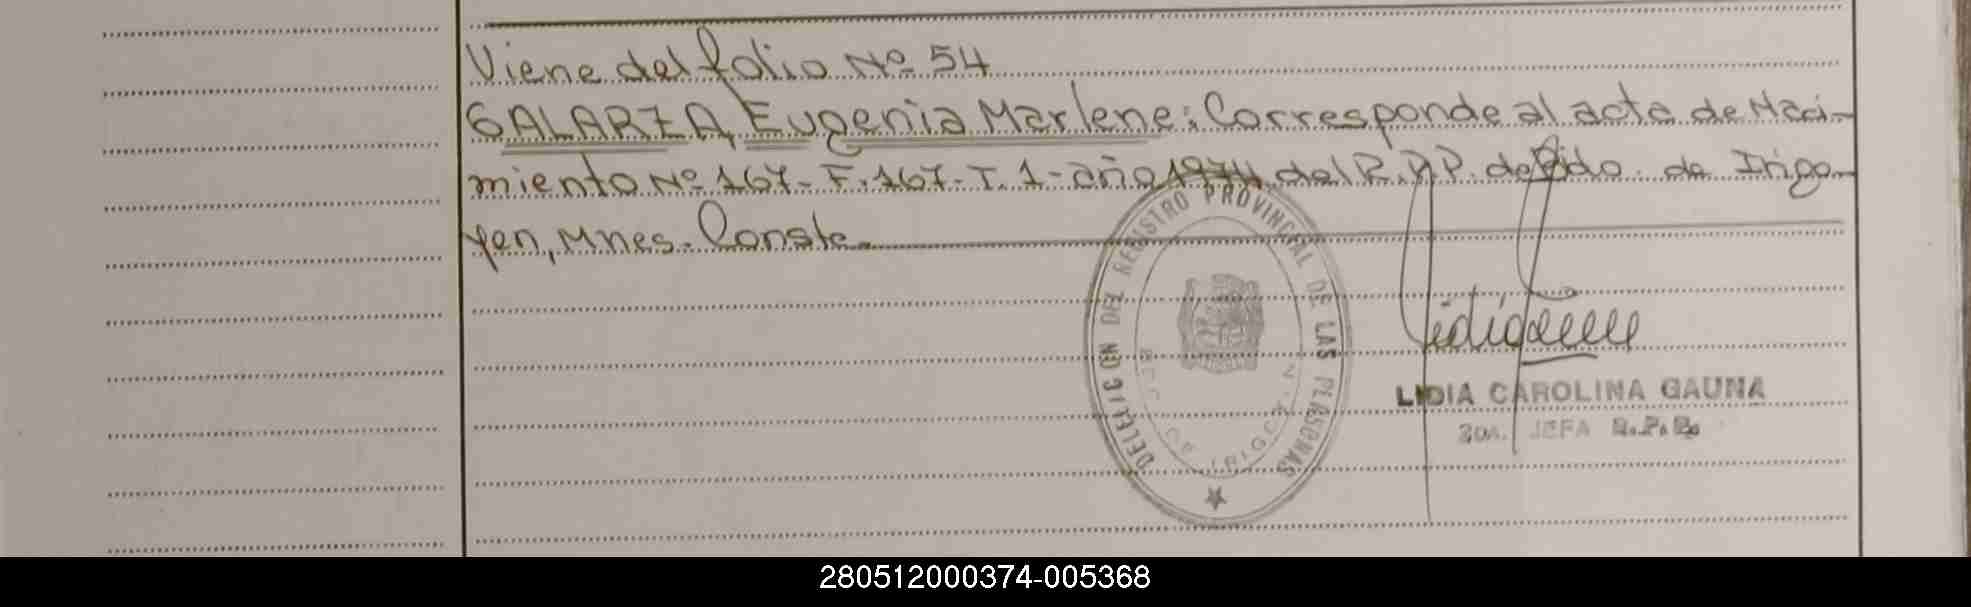 Viene del folio Nº 54
GALARZA, Eugenia Marlene: Corresponde al acta de Naci-
miento Nº 167- F. 167- T. 1- año 1974, del R.P.P. de Bdo. de Irigo-
yen, Mnes. Conste.
DELEGACION DEL REGISTRO PROVINCIAL DE LAS PERSONAS
BDO. DE IRIGOYEN
LIDIA CAROLINA GAUNA
2DA. JEFA R.P.P.
280512000374-005368